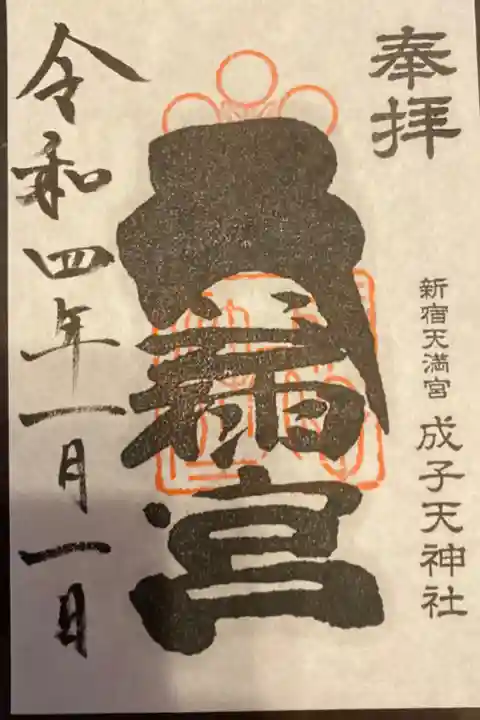 奉拝
新宿天満宮 成子天神社
天満宮
令和四年一月一日